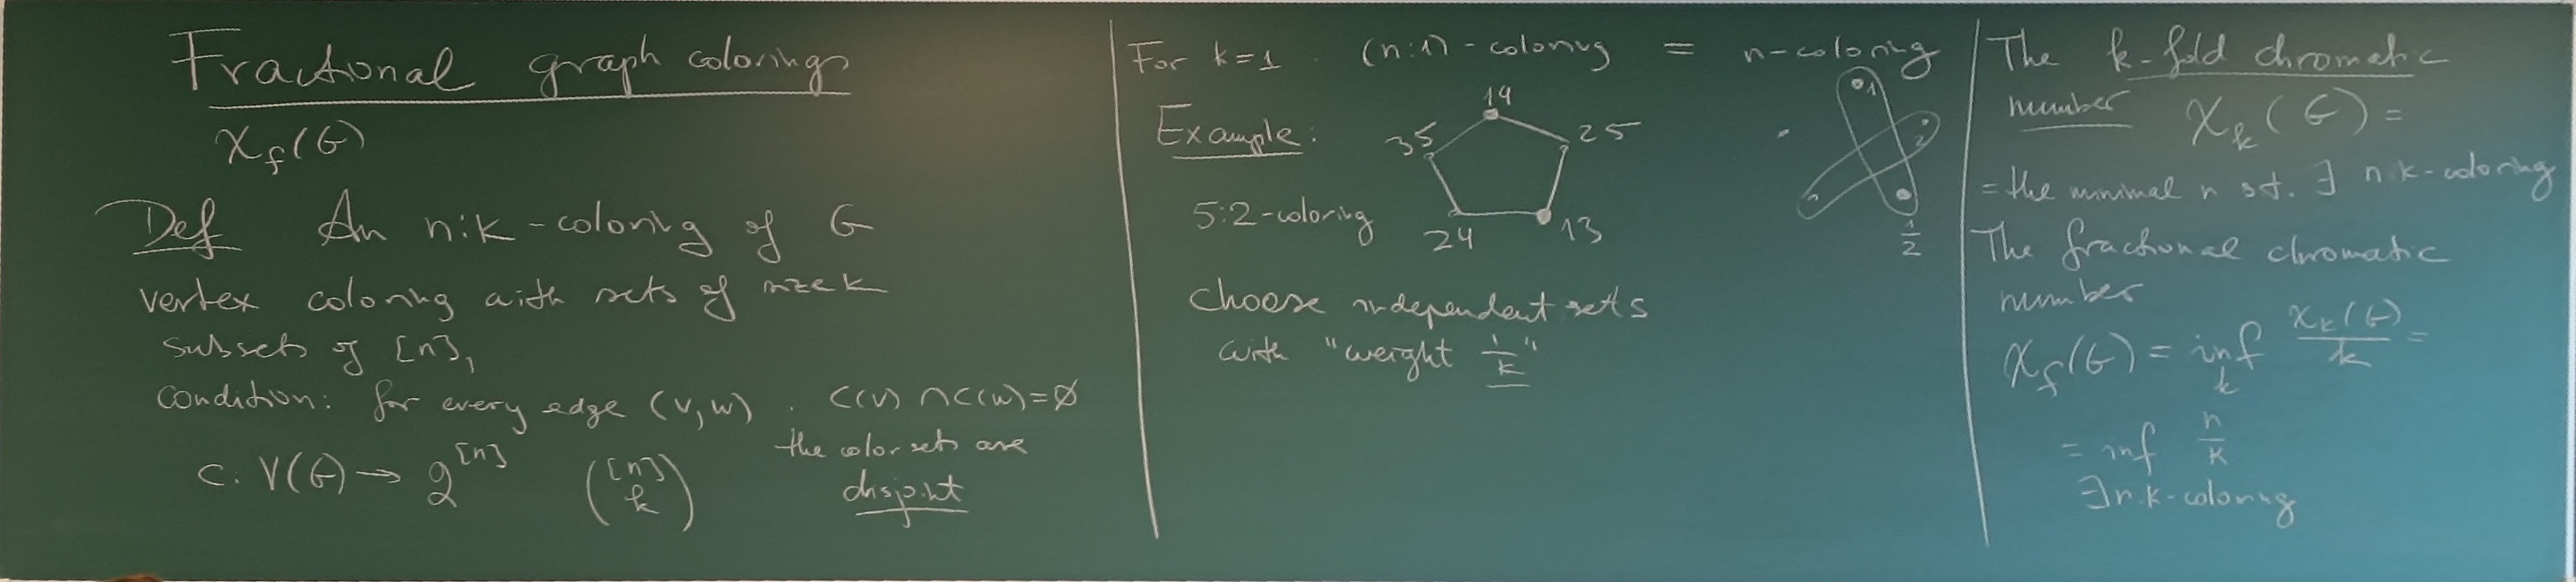 Fractional graph colorings
χ_f(G)
Def An n:k-coloring of G
vertex coloring with sets of size k
subsets of [n],
condition: for every edge (v,w) . c(v) ∩ c(w) = ∅
the color sets are
disjoint
c: V(G) → 2^[n] ([n] k)
For k=1 . (n:1)-coloring = n-coloring
Example:
14
35 25
5:2-coloring
24 13
1
2
1/2
choose independent sets
with "weight 1/k"
The k-fold chromatic
number χ_k(G) =
= the minimal n s.t. ∃ n:k-coloring
The fractional chromatic
number
χ_f(G) = inf_k χ_k(G)/k =
= inf n/k
∃ n:k-coloring